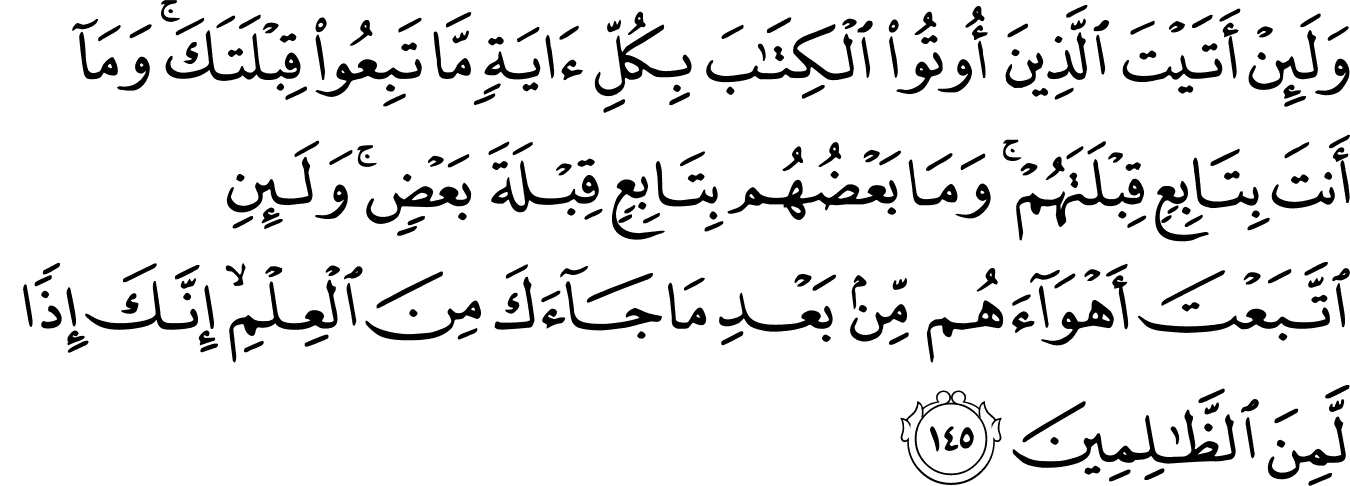 وَلَئِنْ أَتَيْتَ ٱلَّذِينَ أُوتُوا۟ ٱلْكِتَـٰبَ بِكُلِّ ءَايَةٍ مَّا تَبِعُوا۟ قِبْلَتَكَ ۚ وَمَآ
أَنتَ بِتَابِعٍ قِبْلَتَهُمْ ۚ وَمَا بَعْضُهُم بِتَابِعٍ قِبْلَةَ بَعْضٍ ۚ وَلَئِنِ
ٱتَّبَعْتَ أَهْوَآءَهُم مِّنۢ بَعْدِ مَا جَآءَكَ مِنَ ٱلْعِلْمِ ۙ إِنَّكَ إِذًا
لَّمِنَ ٱلظَّـٰلِمِينَ ١٤٥